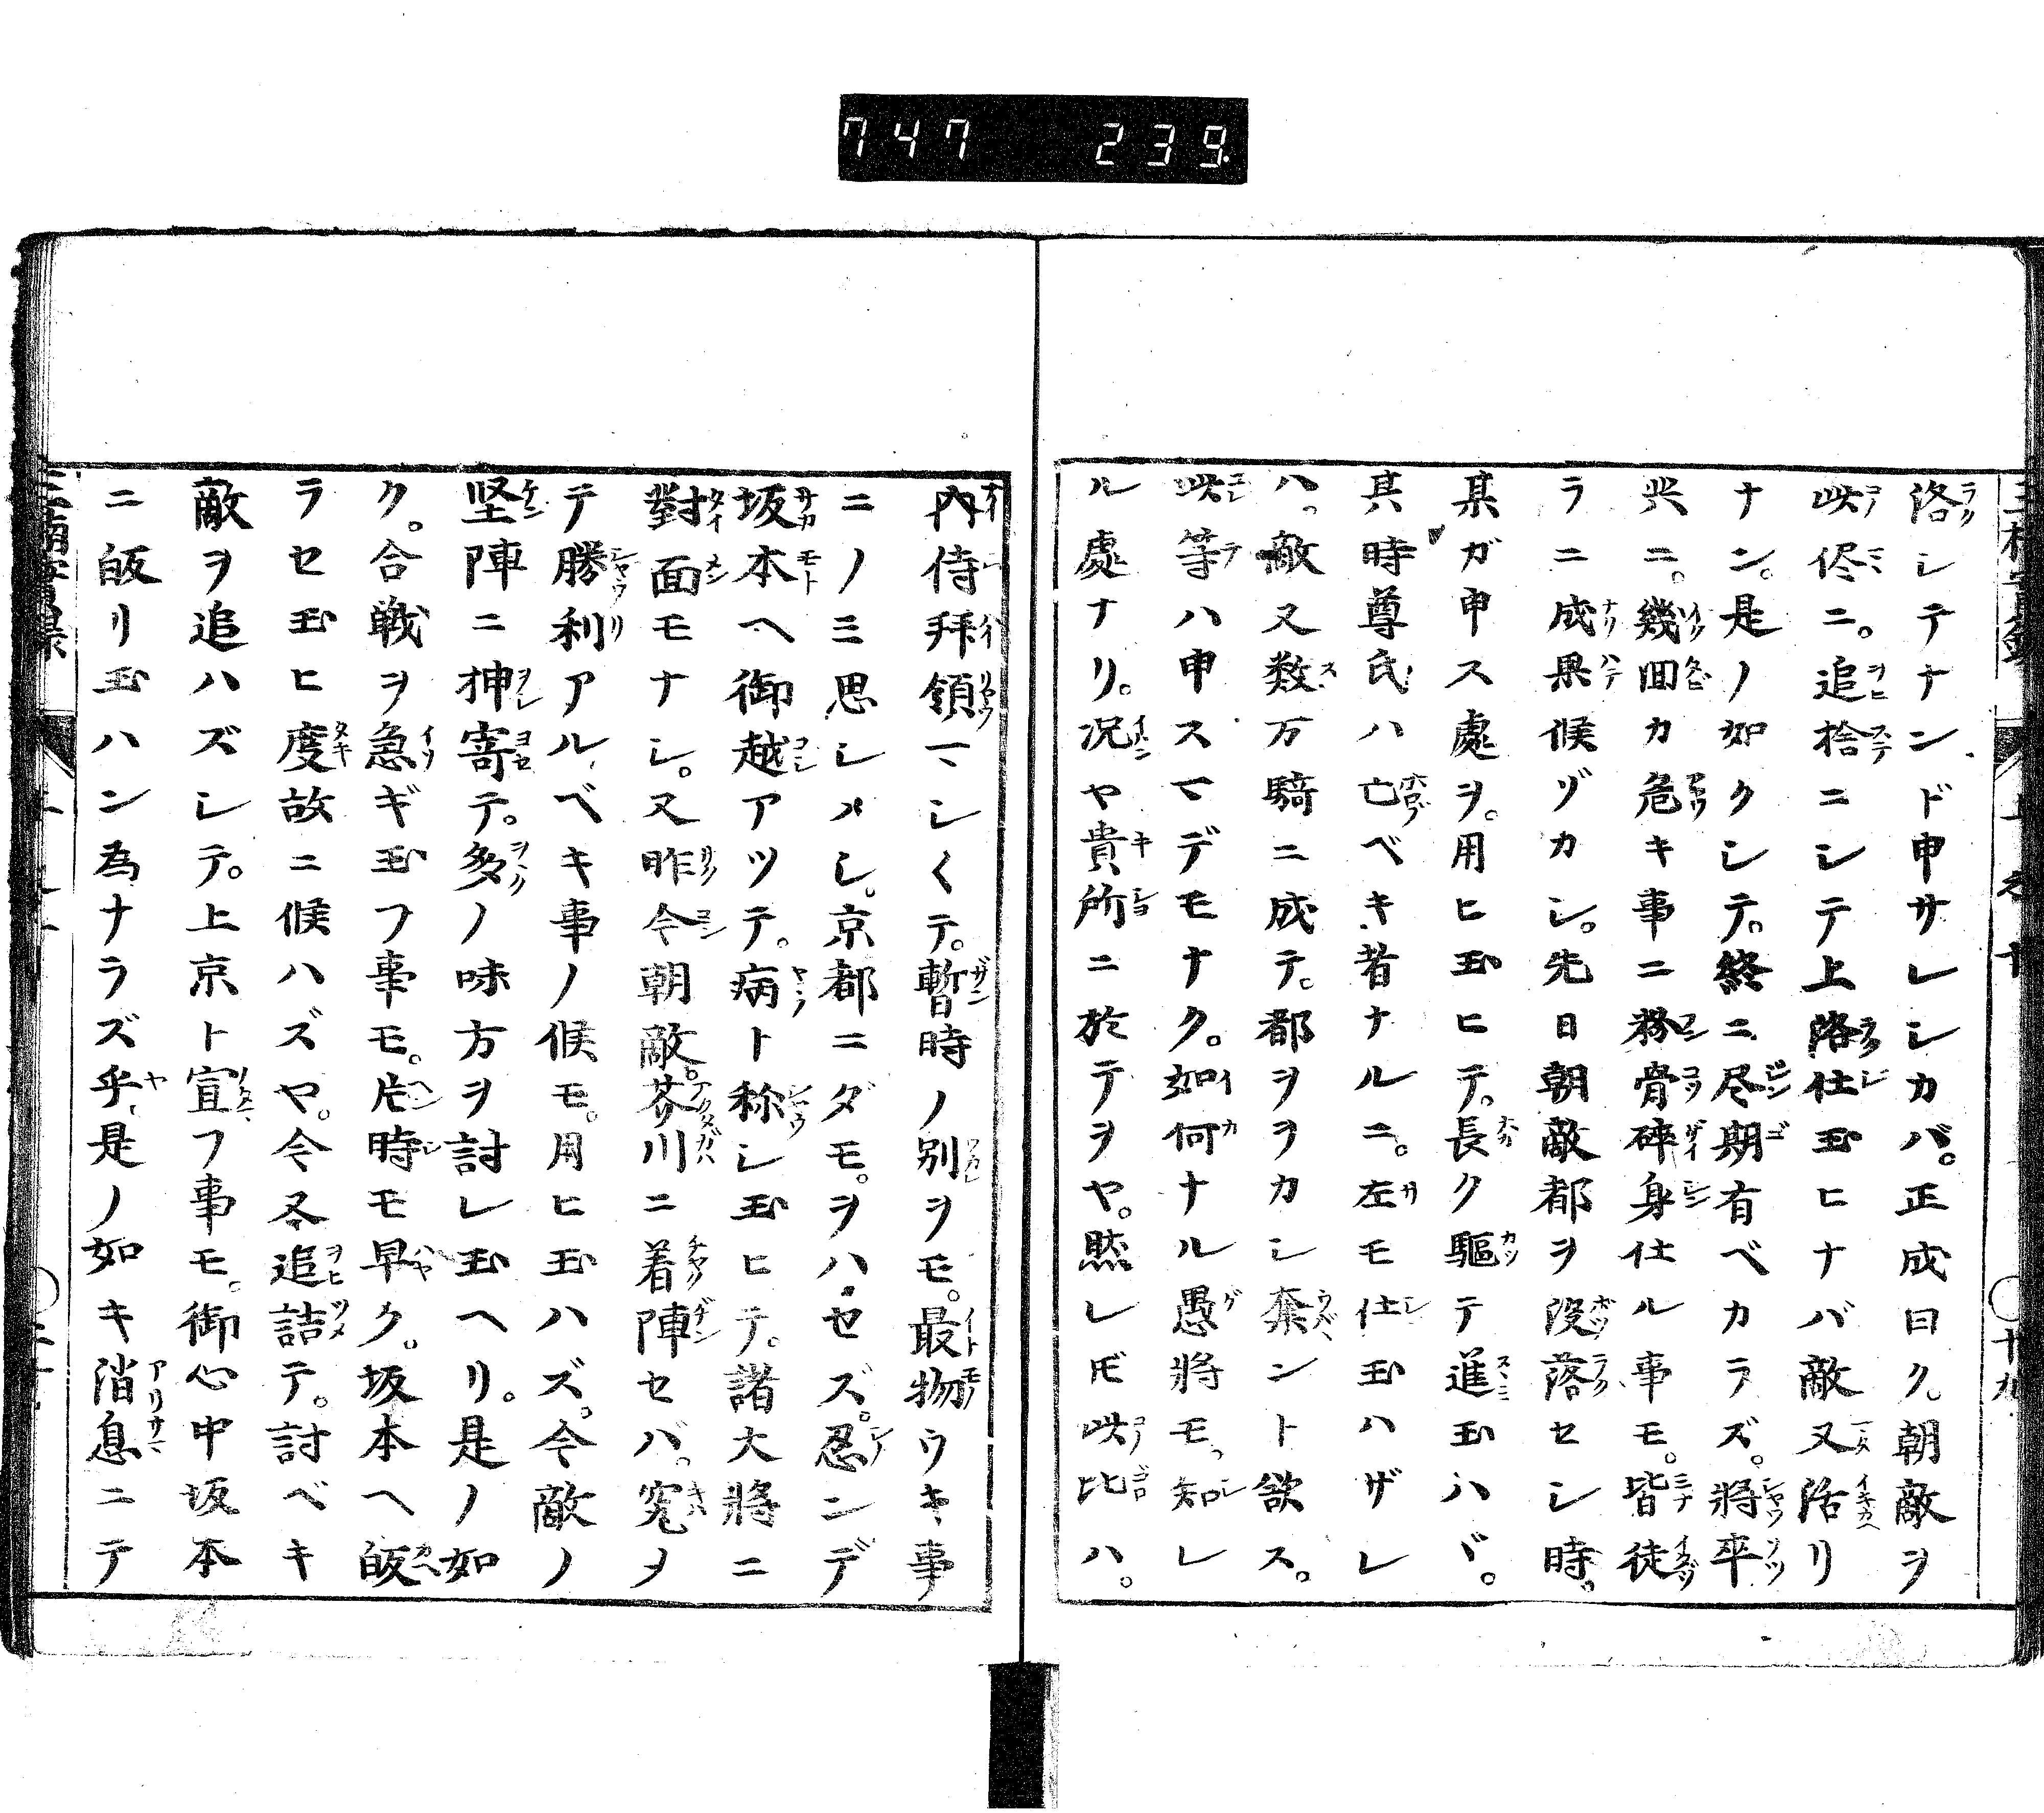 747 239
洛シテナンド申サレシカバ。正成曰ク。朝敵ヲ
此侭ニ。追捨ニシテ上洛仕玉ヒナバ敵又活リ
ナン。是ノ如クシテ。終ニ尽期有ベカラズ。將卒
共ニ。幾回カ危キ事ニ粉骨碎身仕ル事モ。皆徒
ラニ成果候ヅカシ。先日朝敵都ヲ没落セシ時。
某ガ申ス處ヲ。用ヒ玉ヒテ。長ク驅テ進玉ハヾ。
其時尊氏ハ亡ベキ者ナルニ。左モ仕玉ハザレ
ハ。敵又数万騎ニ成テ。都ヲヲカシ奪ント欲ス。
此等ハ申スマデモナク。如何ナル愚將モ。知レ
ル處ナリ。况ヤ貴所ニ於テヲヤ。然レ𪜈此比ハ。
内侍拜領マシ〱テ。暫時ノ別ヲモ。最物ウキ事
ニノミ思シメシ。京都ニダモ。ヲハセズ。忍ンデ
坂本ヘ御越アツテ。病ト称シ玉ヒテ。諸大將ニ
對面モナシ。又昨今朝敵。芥川ニ着陣セバ。究メ
テ勝利アルベキ事ノ候モ。用ヒ玉ハズ。今敵ノ
堅陣ニ押寄テ。多ノ味方ヲ討レ玉ヘリ。是ノ如
ク。合戦ヲ急ギ玉フ事モ。片時モ早ク。坂本ヘ皈
ラセ玉ヒ度故ニ候ハズヤ。今冬追詰テ。討ベキ
敵ヲ追ハズシテ。上京ト宣フ事モ。御心中坂本
ニ皈リ玉ハン為ナラズ乎。是ノ如キ消息ニテ